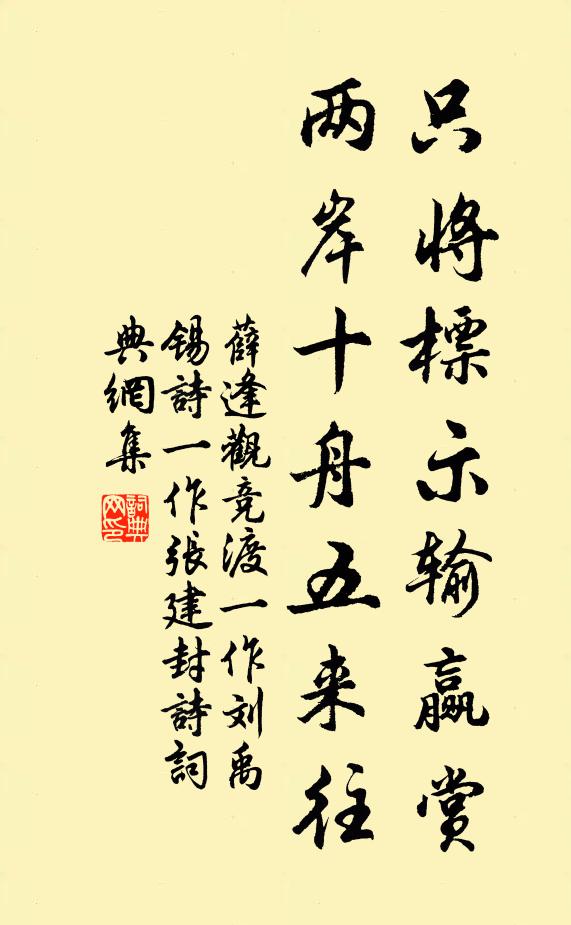 只將標示输贏赏
两岸十舟五来往
薛逢觀竞渡一作刘禹
锡詩一作張建封詩詞
典網集
詞典
网印